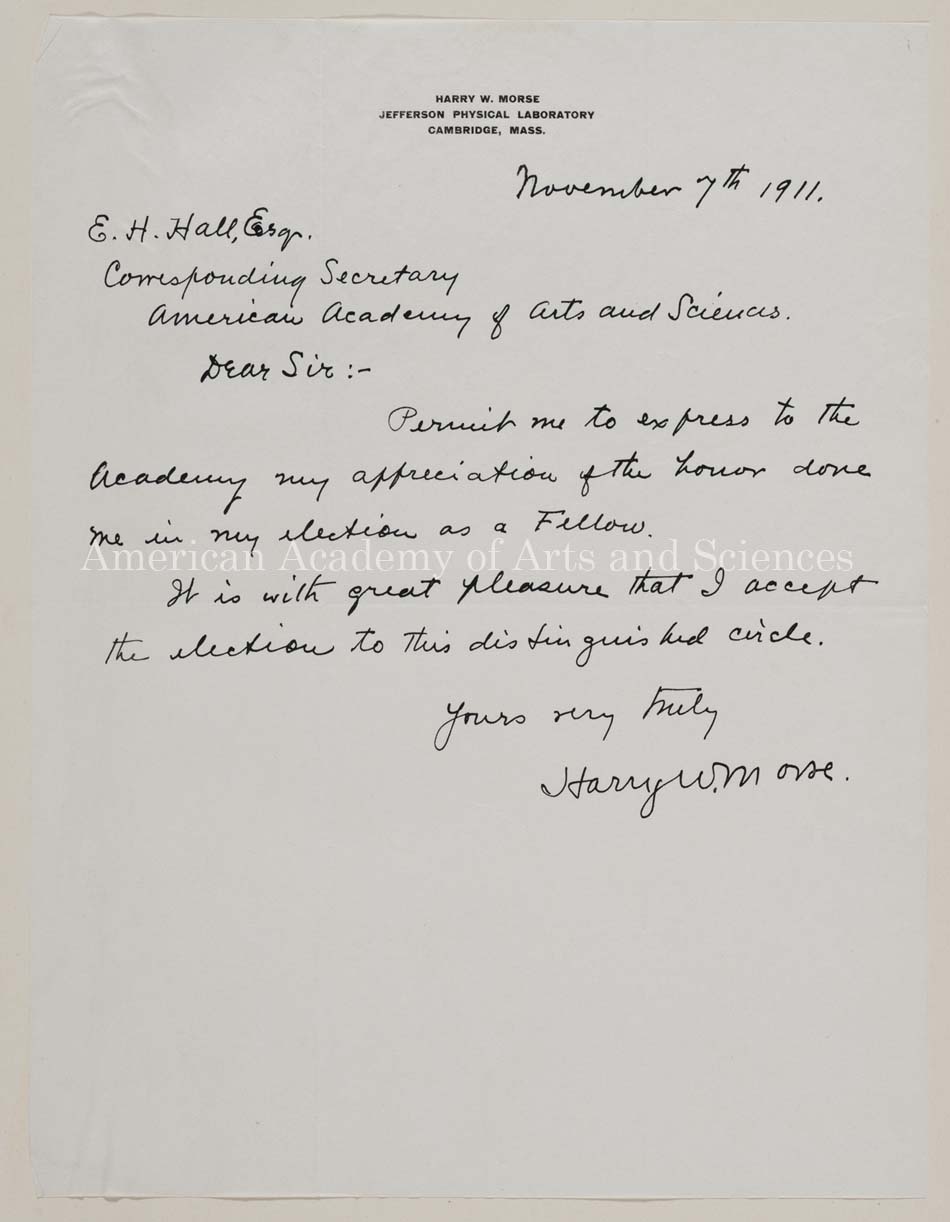 HARRY W. MORSE
JEFFERSON PHYSICAL LABORATORY
CAMBRIDGE, MASS.
November 7th 1911.
E. H. Hall, Esqr.
Corresponding Secretary
American Academy of Arts and Sciences.
Dear Sir:-
Permit me to express to the
Academy my appreciation of the honor done
me in my election as a Fellow.
American Academy of Arts and Sciences
It is with great pleasure that I accept
the election to this distinguished circle.
Yours very truly
Harry W. Morse.